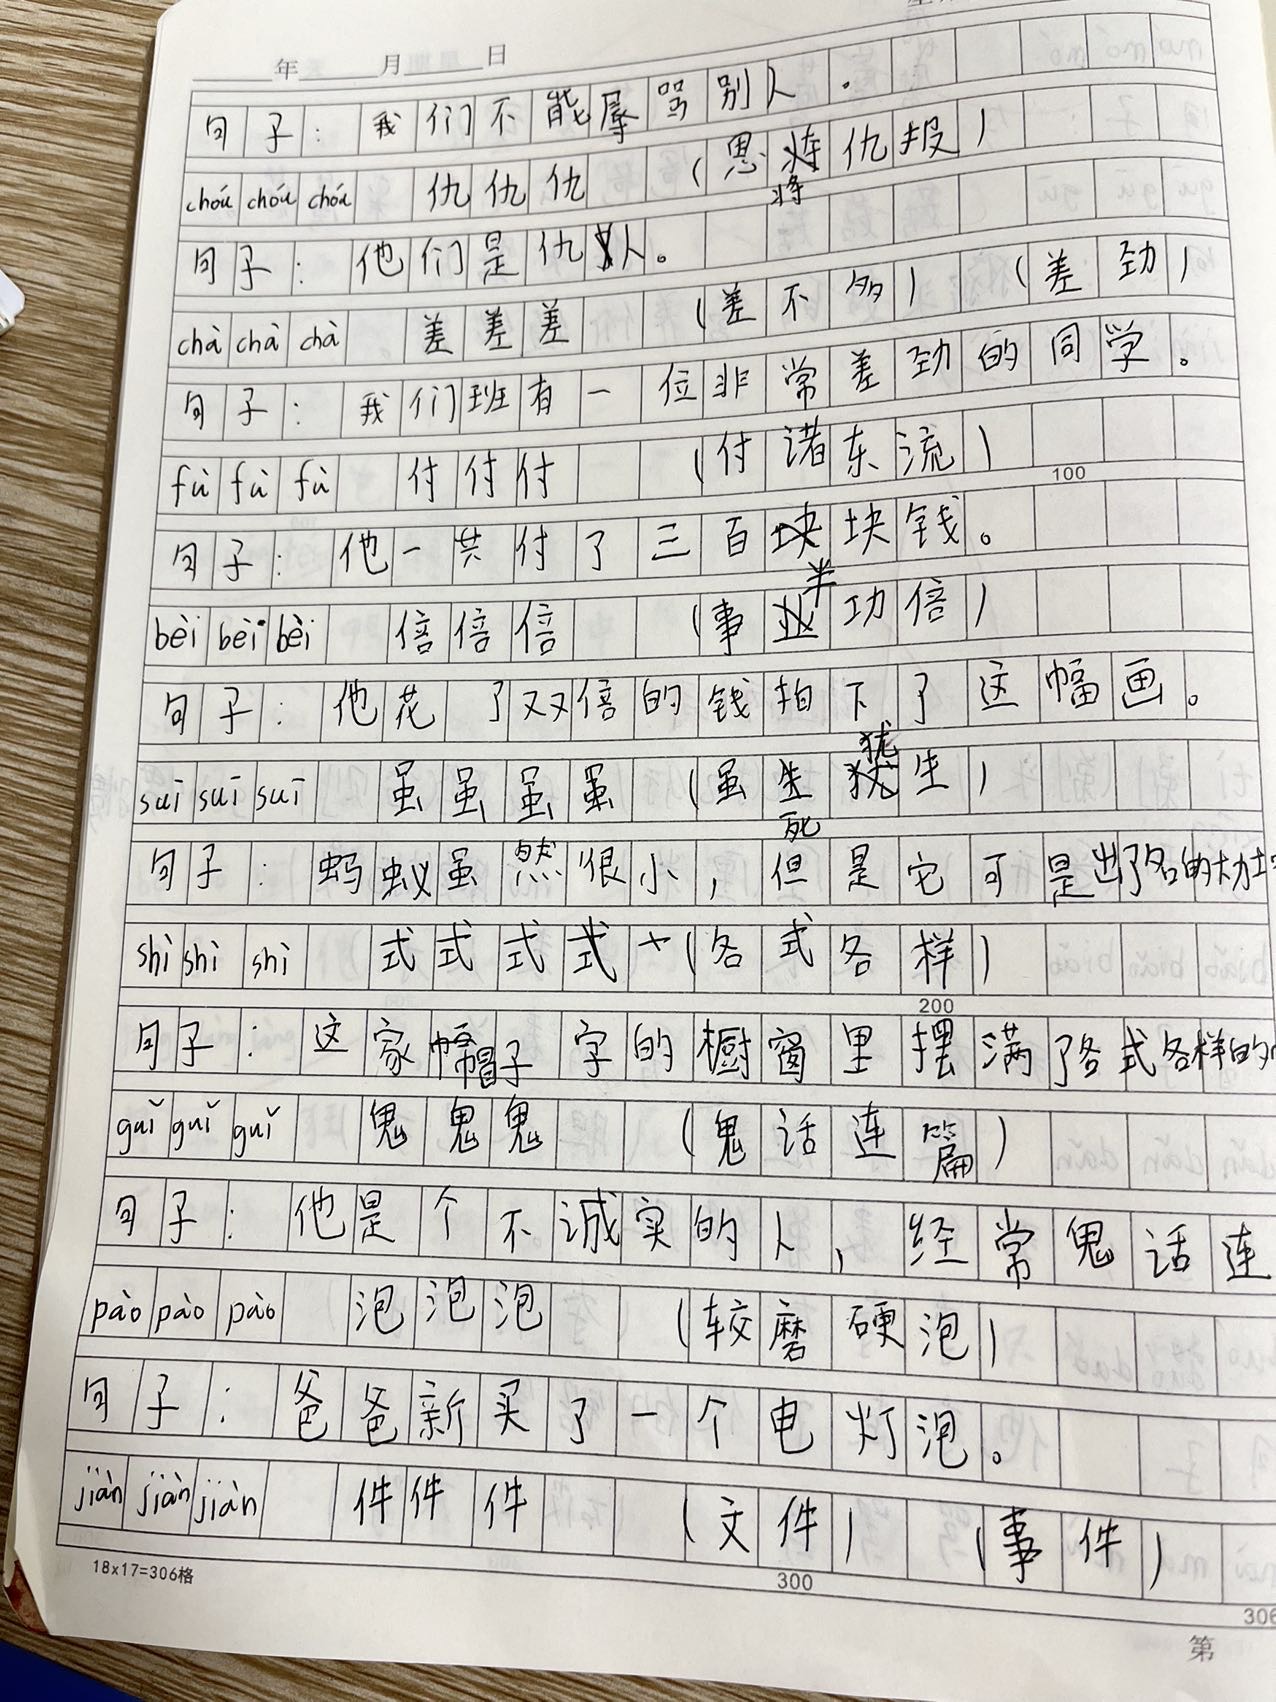 年 月 日
句子：我们不能辱骂别人。
chóu chóu chóu 仇仇仇 （恩将仇报）
句子：他们是仇人。
chà chà chà 差差差 （差不多）（差劲）
句子：我们班有一位非常差劲的同学。
fù fù fù 付付付 （付诸东流）
100
句子：他一共付了三百块钱。
bèi bèi bèi 倍倍倍 （事半功倍）
句子：他花了双倍的钱拍下了这幅画。
suī suī suī 虽虽虽虽 （虽死犹生）
句子：蚂蚁虽然很小，但是它可是出了名的大力士
shì shì shì 式式式式 （各式各样）
200
句子：这家帽子字的橱窗里摆满了各式各样的
guǐ guǐ guǐ 鬼鬼鬼 （鬼话连篇）
句子：他是个不诚实的人，经常鬼话连
pào pào pào 泡泡泡 （较磨硬泡）
句子：爸爸新买了一个电灯泡。
jiàn jiàn jiàn 件件件 （文件）（事件）
18×17=306格
300
306
第